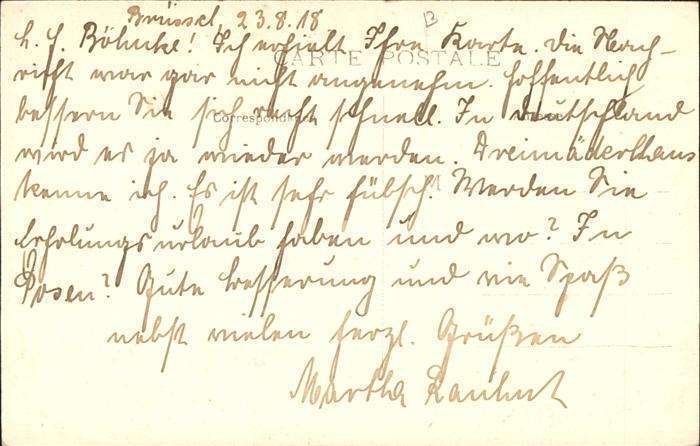 Brüssel, 23.8.18
L. H. Böhnke! Ich erhielt Ihre Karte. Die Nach-
CARTE POSTALE
richt war gar nicht angenehm. Hoffentlich
bessern Sie sich recht schnell. In Deutschland
Correspondance
wird es ja wieder werden. Dreimäderlhaus
kenne ich. Es ist sehr hübsch. Werden Sie
Erholungsurlaub haben und wo? In
Posen? Gute Besserung und viel Spaß
nebst vielen herzl. Grüßen
Martha